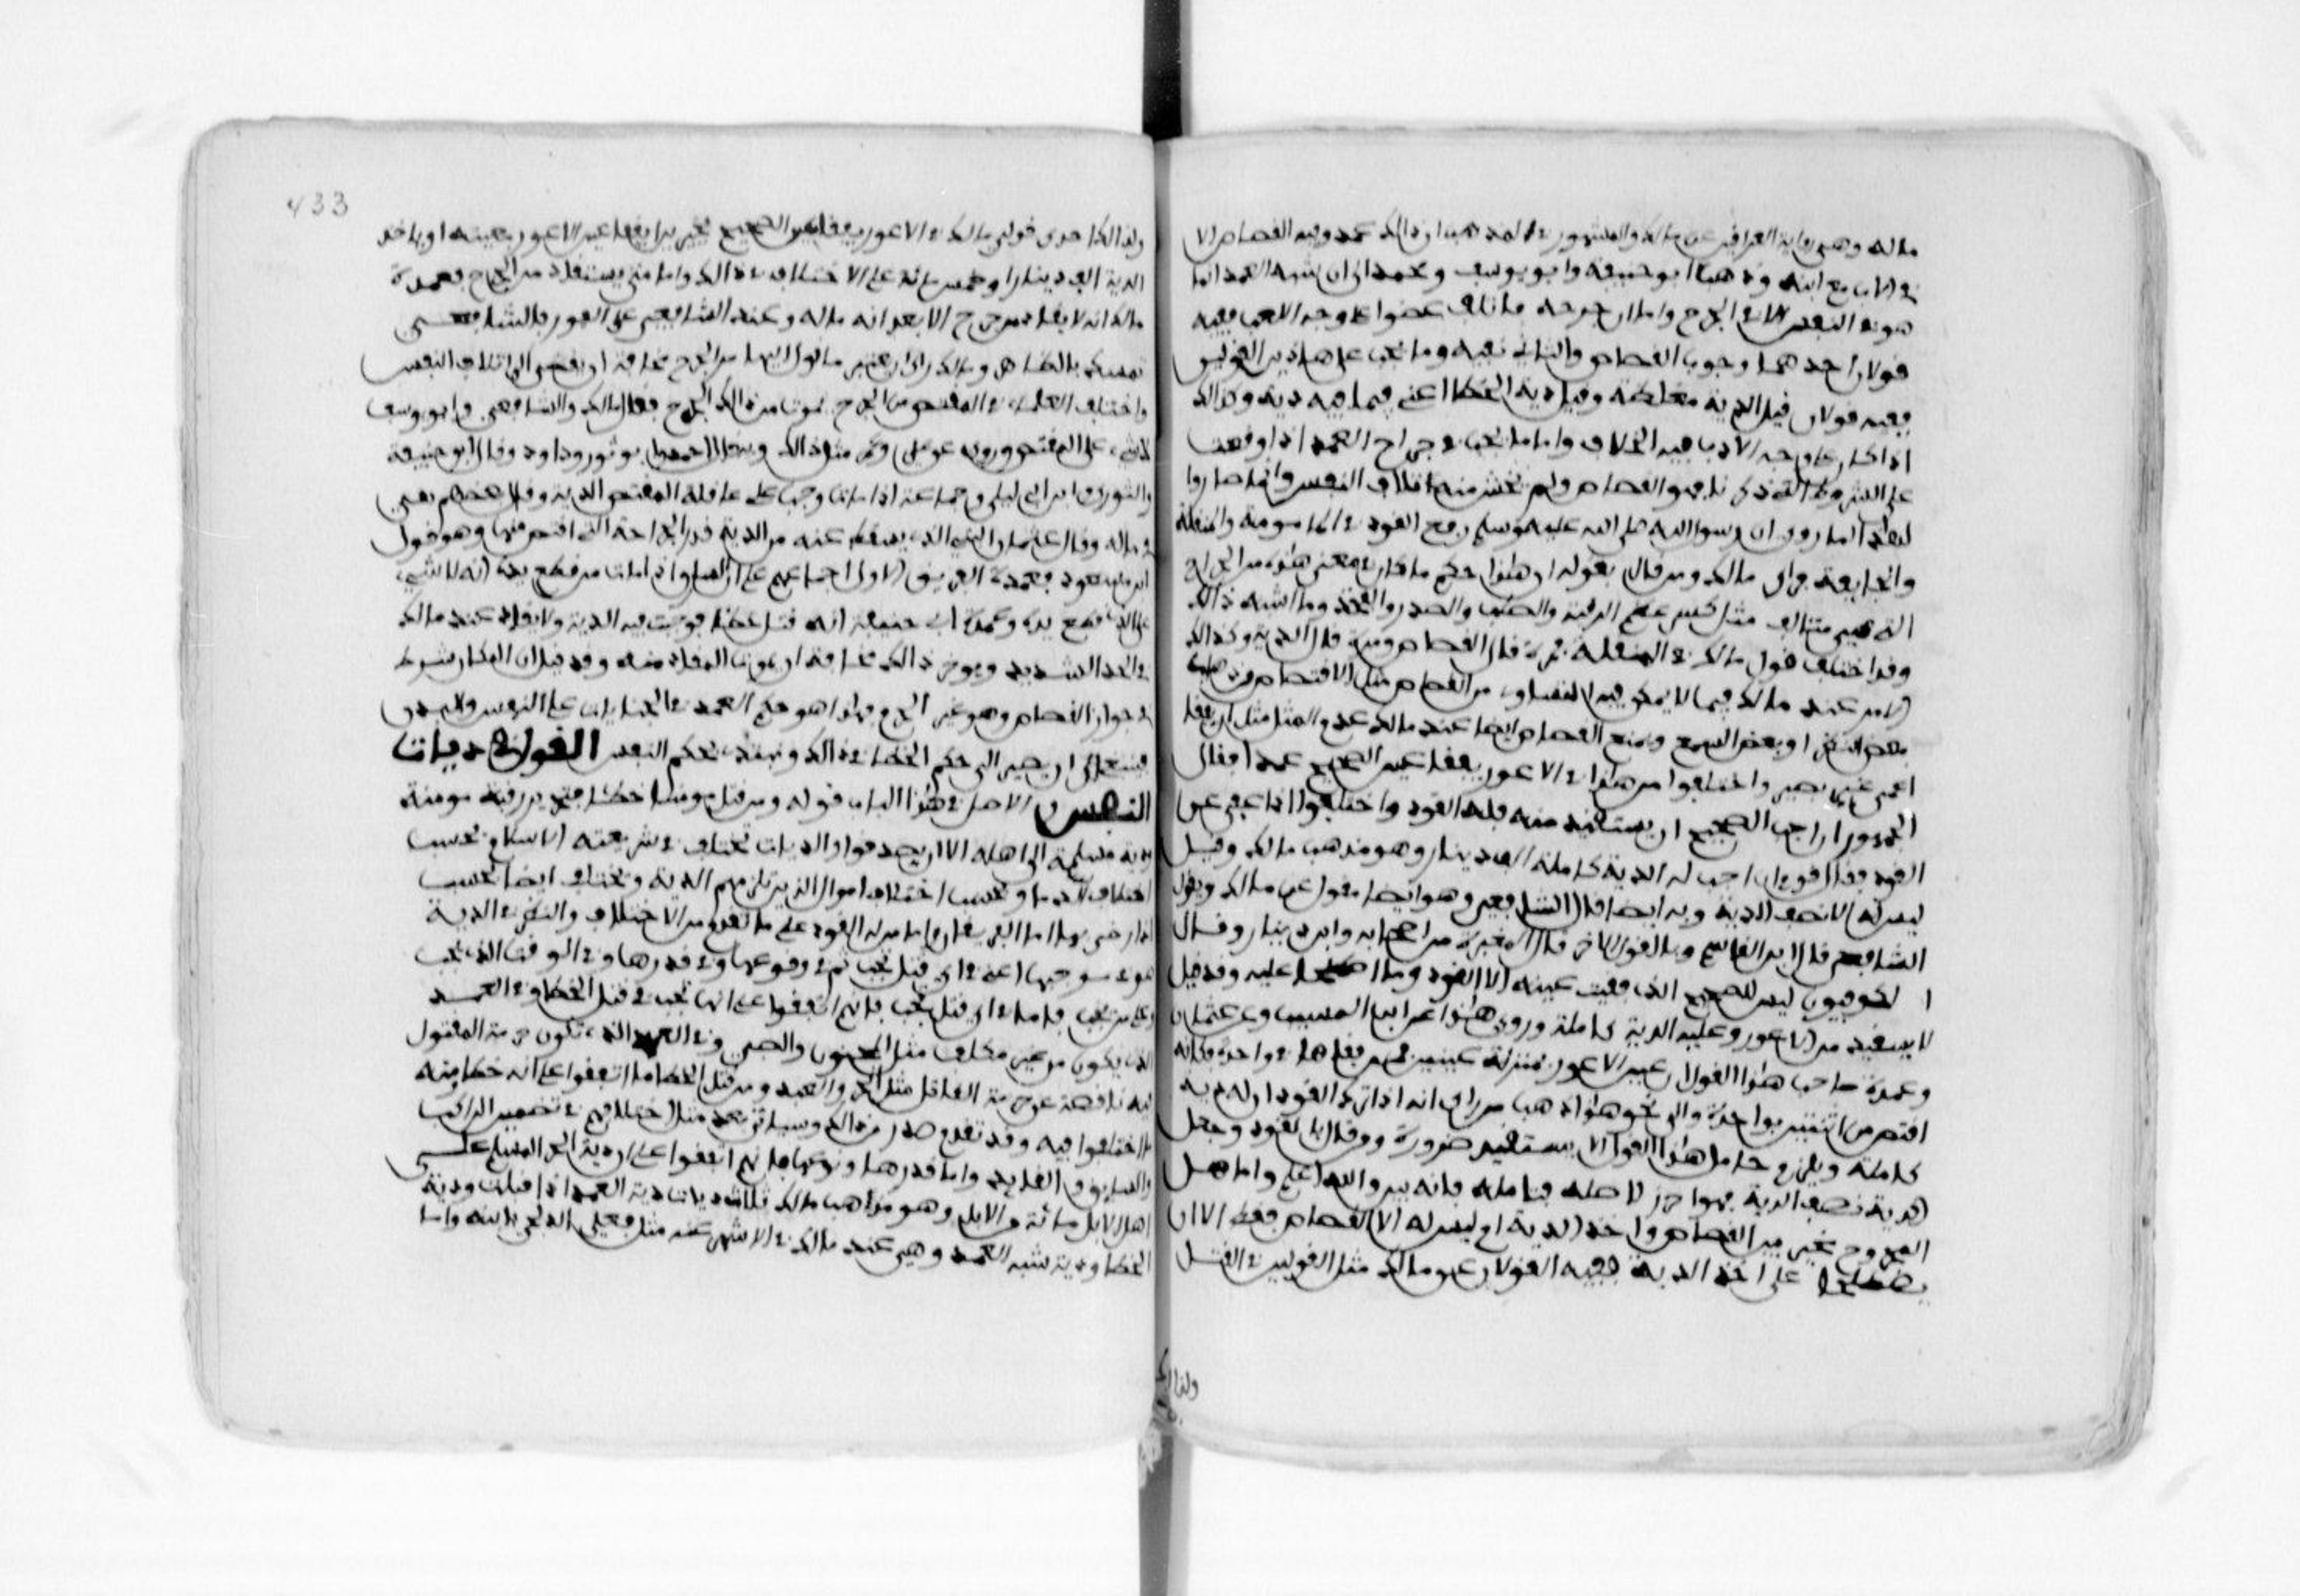 ماله وهي رواية العراقيين عن مالك والمشهور في المذهب ان ذلك عمد وفيه القصاص الا
في الاب مع ابنه وذهب ابو حنيفة وابو يوسف ومحمد الى ان شبه العمد انما
هو في النفس لا في الجرح واما ان جرحه فاتلف عضوا على وجه اللعب ففيه
قولان احدهما وجوب القصاص والثاني نفيه وما يجب على هاذين القولين
ففيه قولان قيل الدية مغلظة وقيل دية الخطا اعني فيما فيه دية وكذالك
اذا كان على وجه الادب ففيه الخلاف واما ما يجب في جراح العمد اذا وقعت
على الشروط التي ذكرنا فهو القصاص ولم يخش منه اتلاف النفس وانما صاروا
لهاذا لما روي ان رسول الله صلى الله عليه وسلم رفع القود في المامومة والمنقلة
والجايفة فراى مالك ومن قال بقوله ان هاذا حكم ما كان في معنى هاذه من الجراح
التي هي متالف مثل كسر عظم الرقبة والصلب والصدر والفخذ وما اشبه ذالك
وقد اختلف قول مالك في المنقلة فمرة قال القصاص ومرة قال الدية وكذالك
الامر عند مالك فيما لا يمكن فيه التساوي من القصاص مثل الاقتصاص من ذهاب
بعض النظر او بعض السمع ويمنع القصاص ايضا عند مالك عدم المثل مثل ان يفقا
اعمى عين بصير واختلفوا من هاذا في الاعور يفقا عين الصحيح عمدا فقال
الجمهور ان احب الصحيح ان يستقيد منه فله القود واختلفوا اذا عفى عن
القود فقال قوم ان احب له الدية كاملة الف دينار وهو مذهب مالك وقيل
ليس له الا نصف الدية وبه ايضا قال الشافعي وهو ايضا منقول عن مالك وبقول
الشافعي قال ابن القاسم وبالقول الاخر قال المغيرة من اصحابه وابن دينار وقال
الكوفيون ليس للصحيح الذي فقيت عينه الا القود وما اصطلحا عليه وقد قيل
لا يستقيد من الاعور وعليه الدية كاملة وروي هاذا عن ابن المسيب وعن عثمان
وعمدة صاحب هاذا القول ان عين الاعور بمنزلة عينين فمن فقاها في واحدة فكانه
اقتص من اثنتين بواحدة والى نحو هاذا ذهب من راى انه اذا ترك القود ان له دية
كاملة ويلزم حامل هاذا القول الا يستقيد ضرورة ومن قال بالقود وجعل
الدية نصف الدية فهو احرز لاصله فتامله فانه بين والله اعلم واما هل
المجروح مخير بين القصاص واخذ الدية ام ليس له الا القصاص فقط الا ان
يصطلحا على اخذ الدية ففيه القولان عن مالك مثل القولين في القتل
وكذالك
وكذالك احدى قولي مالك في الاعور يفقا عين الصحيح يخير بين ان يفقا عين الاعور بعينه او ياخذ
الدية الف دينار او خمس مائة على الاختلاف في ذالك واما متى يستقاد من الجرح فعمدة
مالك انه لا يقاد من جرح الا بعد اندماله وعند الشافعي على الفور فالشافعي
تمسك بالظاهر ومالك راى ان يعتبر ما يؤول اليه امر الجرح مخافة ان يفضي الى اتلاف النفس
واختلف العلماء في المقتص من الجرح يموت من ذالك الجرح فقال مالك والشافعي وابو يوسف
لا شيء على المقتص وروي عن علي وعمر مثل ذالك وبه قال احمد وابو ثور وداود وقال ابو حنيفة
والثوري وابن ابي ليلى وجماعة اذا مات وجب على عاقلة المقتص الدية وقال بعضهم هي
في ماله وقال عثمان البتي الذي يسقط عنه من الدية قدر الجراحة التي اقتص منها وهو قول
ابن مسعود فعمدة الفريق الاول اجماعهم على ان السارق اذا مات من قطع يده انه لا شيء
على الذي قطع يده وعمدة ابي حنيفة انه قتل خطا فوجبت فيه الدية ولا يقاد عند مالك
في الحر الشديد ويوخر ذالك مخافة ان يموت المقاد منه وقد قيل ان المكان شرط
في جواز القصاص وهو غير الحرم فهاذا هو حكم العمد في الجنايات على النفس والبدن
فينبغي ان يصير الى حكم الخطا في ذالك ونبتدئ بحكم النفس القول في ديات
النفس والاصل في هاذا الباب قوله ومن قتل مومنا خطئا فتحرير رقبة مومنة
ودية مسلمة الى اهله الا ان يصدقوا والديات تختلف في شريعته الاسلام بحسب
اختلاف الدما وبحسب اختلاف اموال الذين تلزمهم الدية وتختلف ايضا بحسب
اذا رضي بها اما الفريقان واما من له القود على ما تقدم من الاختلاف والنظر في الدية
هو في موجبها اعني في اي قتل تجب ثم في نوعها وفي قدرها وفي الوقت الذي تجب
وعلى من تجب فاما في اي قتل تجب فانهم اتفقوا على انها تجب في قتل الخطا وفي العمد
الذي يكون من غير مكلف مثل المجنون والصبي وفي العمد الذي تكون حرمة المقتول
فيه ناقصة عن حرمة القاتل مثل الحر والعبد ومن قتل الخطا ما اتفقوا على انه خطا ومنه
ما اختلفوا فيه وقد تقدم صدر من ذالك وسياتي بعد مثل اختلافهم في تضمين الراكب
والسايق والقايد واما قدرها ونوعها فانهم اتفقوا على ان دية الحر المسلم على
اهل الابل مائة من الابل وهو مذاهب مالك ثلاث ديات دية العمد اذا قبلت ودية
الخطا ودية شبه العمد وهي عند مالك في الاشهر عنه مثل فعل المدلجي بابنه واما